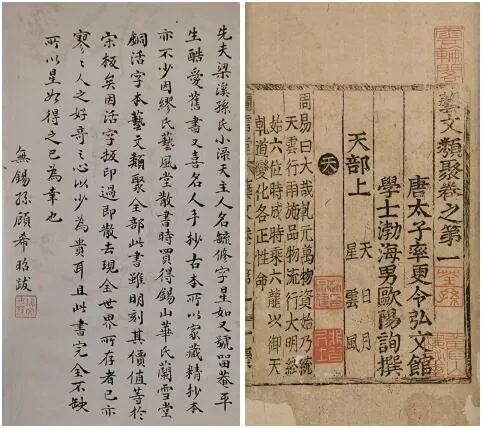 先夫梁溪孫氏小淥天主人名毓修字星如又號留菴平
生酷愛舊書又喜名人手抄古本所以家藏精抄本
亦不少因繆氏藝風堂散書時買得錫山華氏蘭雪堂
銅活字本藝文類聚全部此書雖明刻其價值等於
宋板矣因活字板印過即散去現全世界所存者已亦
寥々人之好奇之心以少為貴耳且此書完全不缺
所以星如得之已為幸也
無錫孫顧希昭跋
雲輪閣
藝文類聚卷之第一
荃孫
唐太子率更令弘文館
學士渤海男歐陽詢撰
天部上
天 日 月
星 雲 風
天
周易曰大哉乾元萬物資始乃統
天雲行雨施品物流行大明終
始六位時成時乘六龍以御天
乾道變化各正性命